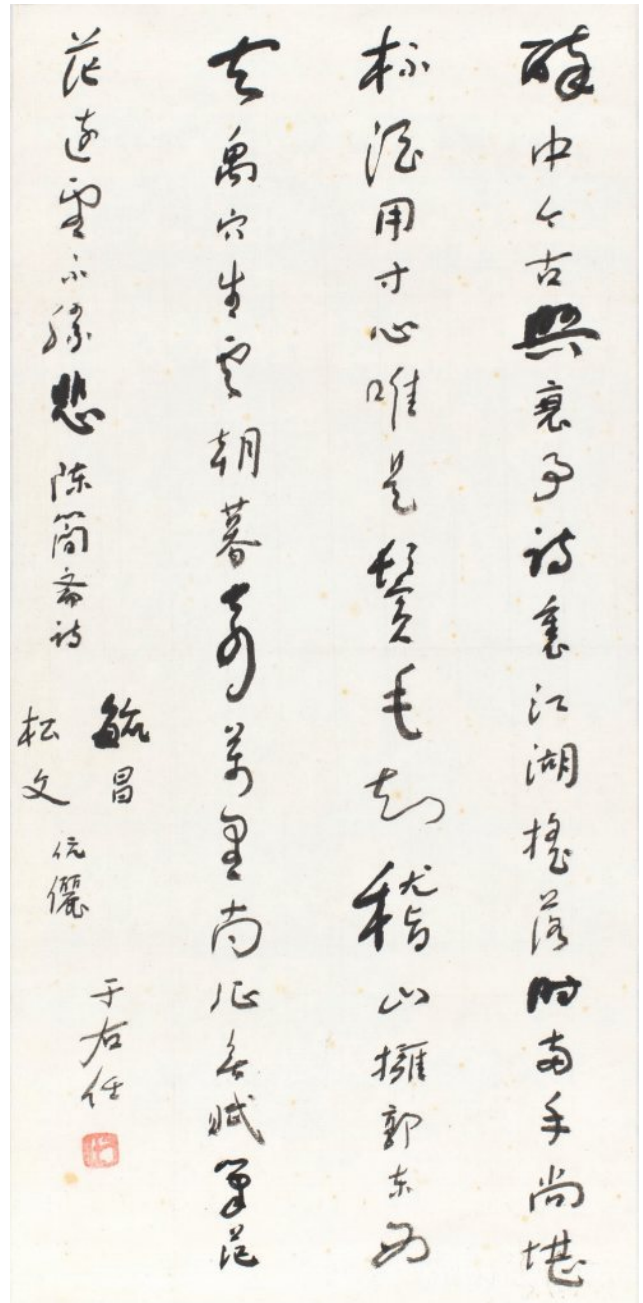 醉中今古興衰事詩裏江湖搖落時兩手尚堪
杯酒用寸心唯是鬢毛知稽山擁郭東西
去禹穴生雲朝暮奇萬里南征無賦筆茫
茫遠望不勝悲 陳簡齋詩
毓昌
松文
伉儷
于右任